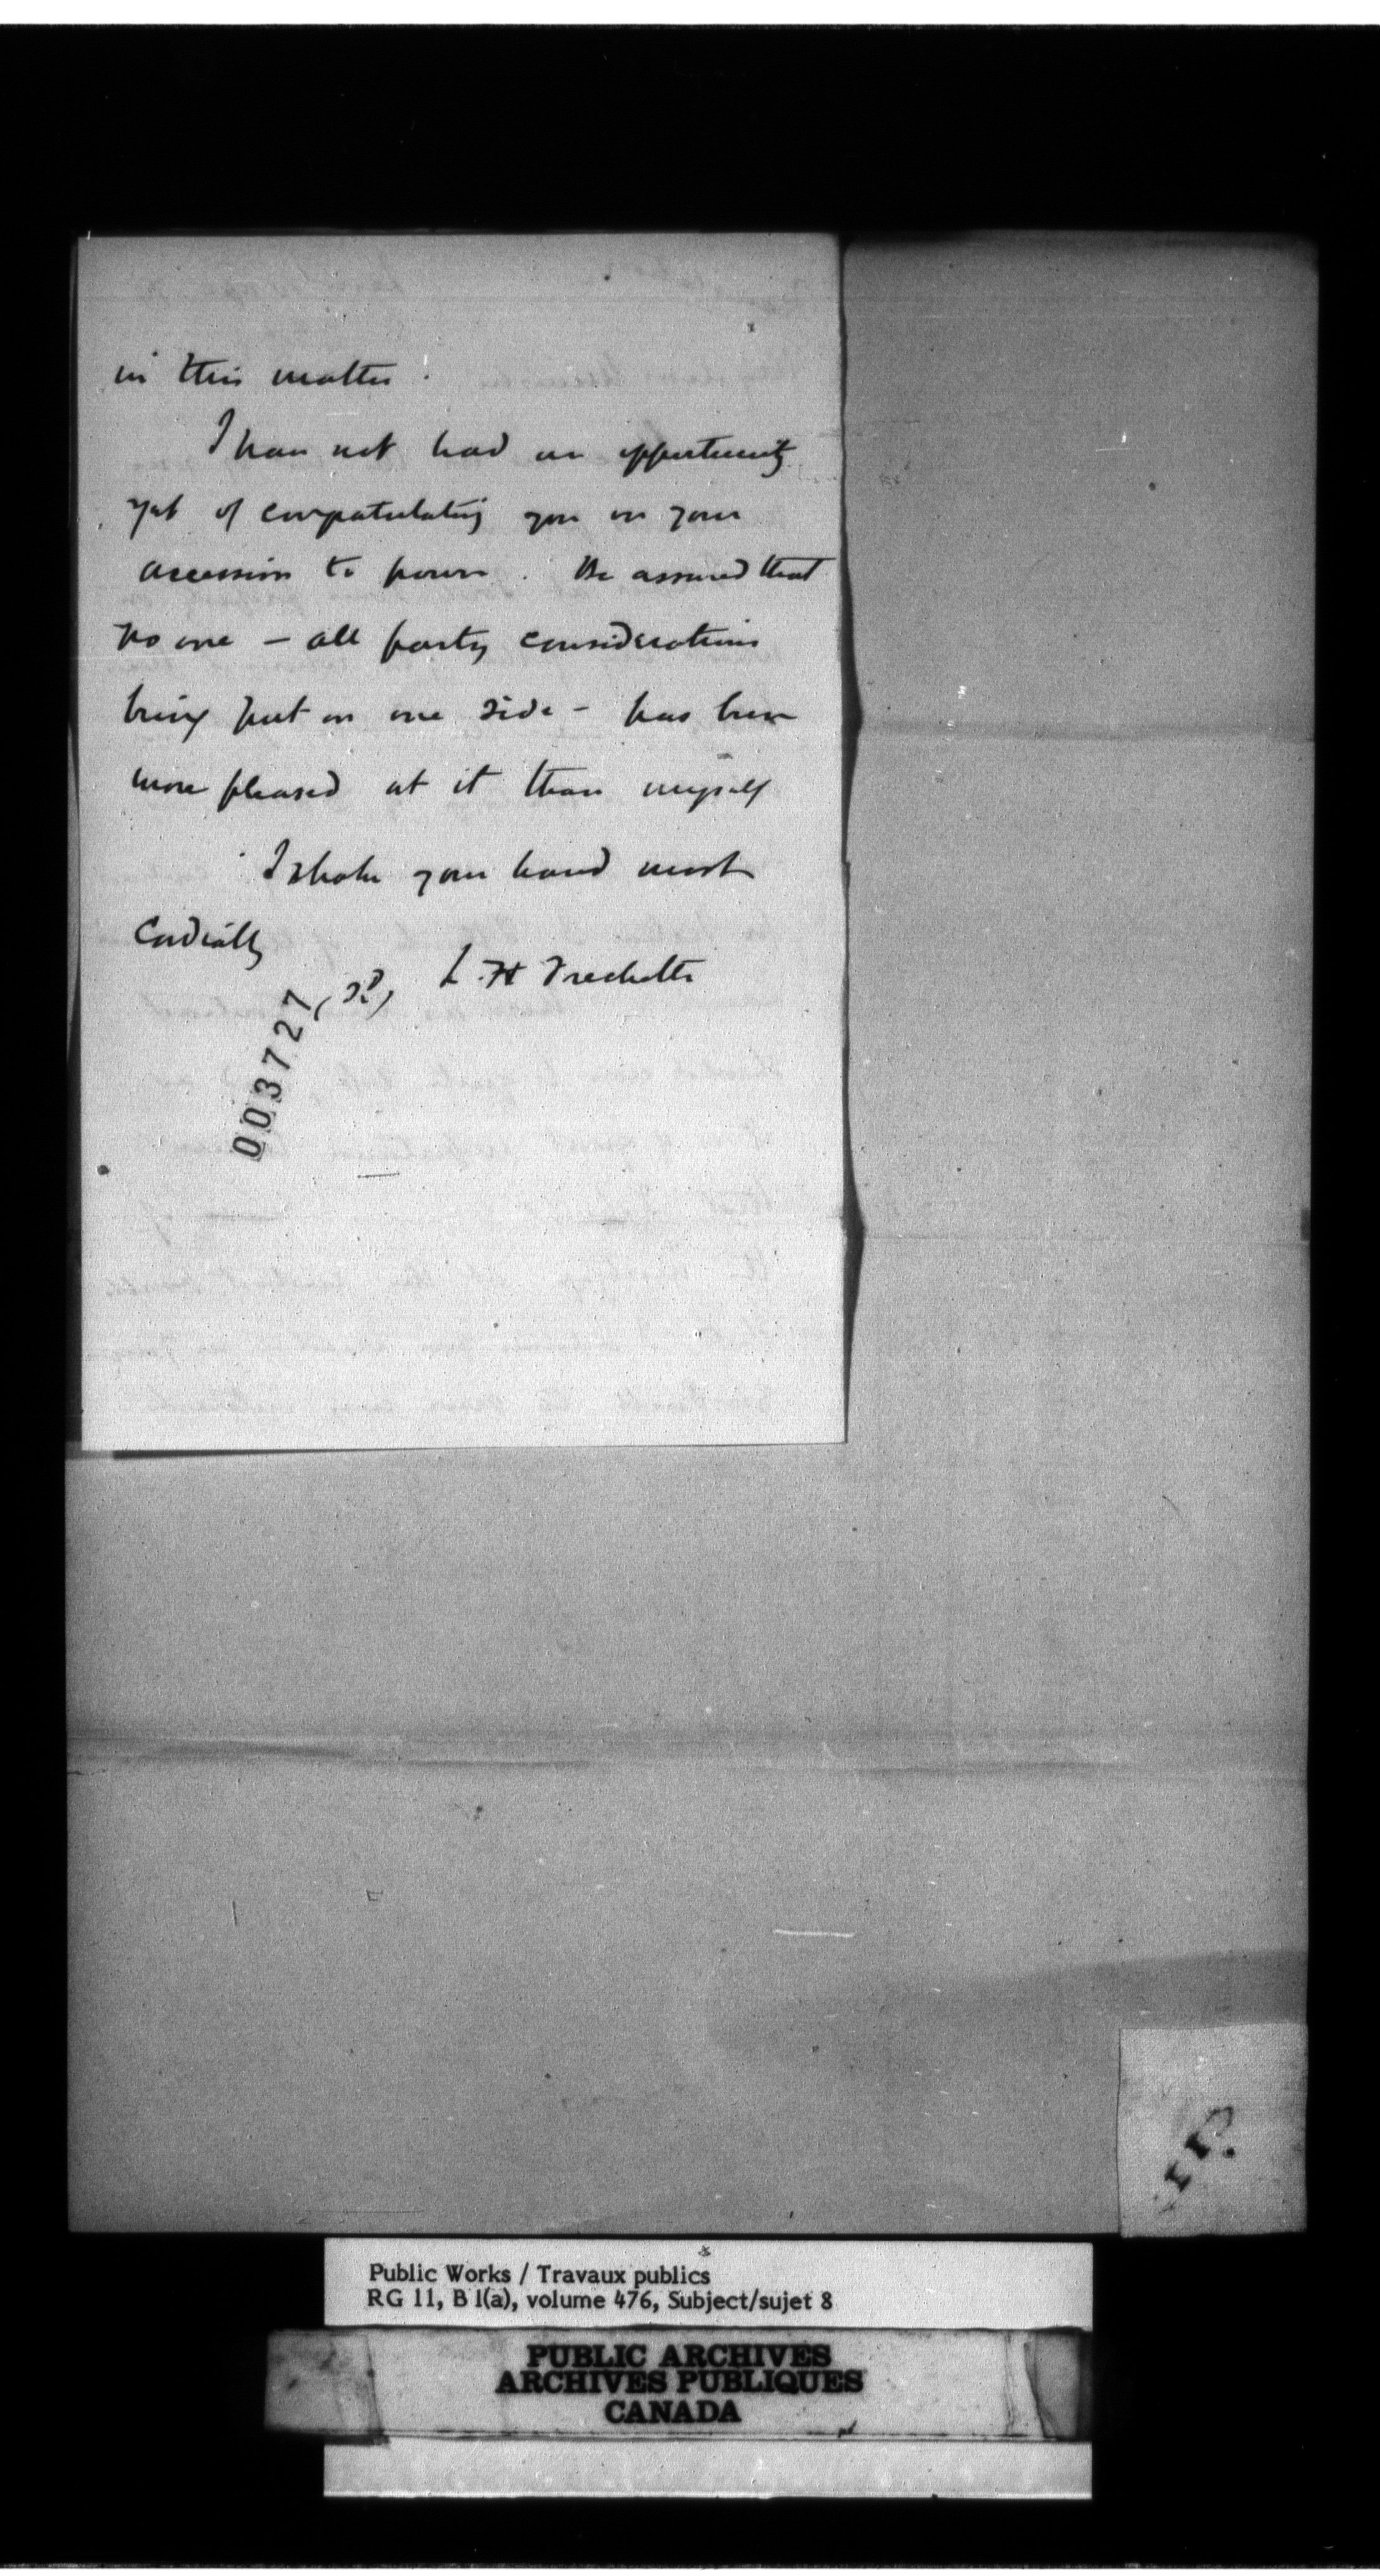 in this matter.
I have not had an opportunity
yet of congratulating you on your
accession to power. Be assured that
no one - all party considerations
being put on one side - has been
more pleased at it than myself
I shake your hand most
Cordially
(sd) L. H Frechette
003727
Public Works / Travaux publics
RG 11, B 1(a), volume 476, Subject/sujet 8
PUBLIC ARCHIVES
ARCHIVES PUBLIQUES
CANADA